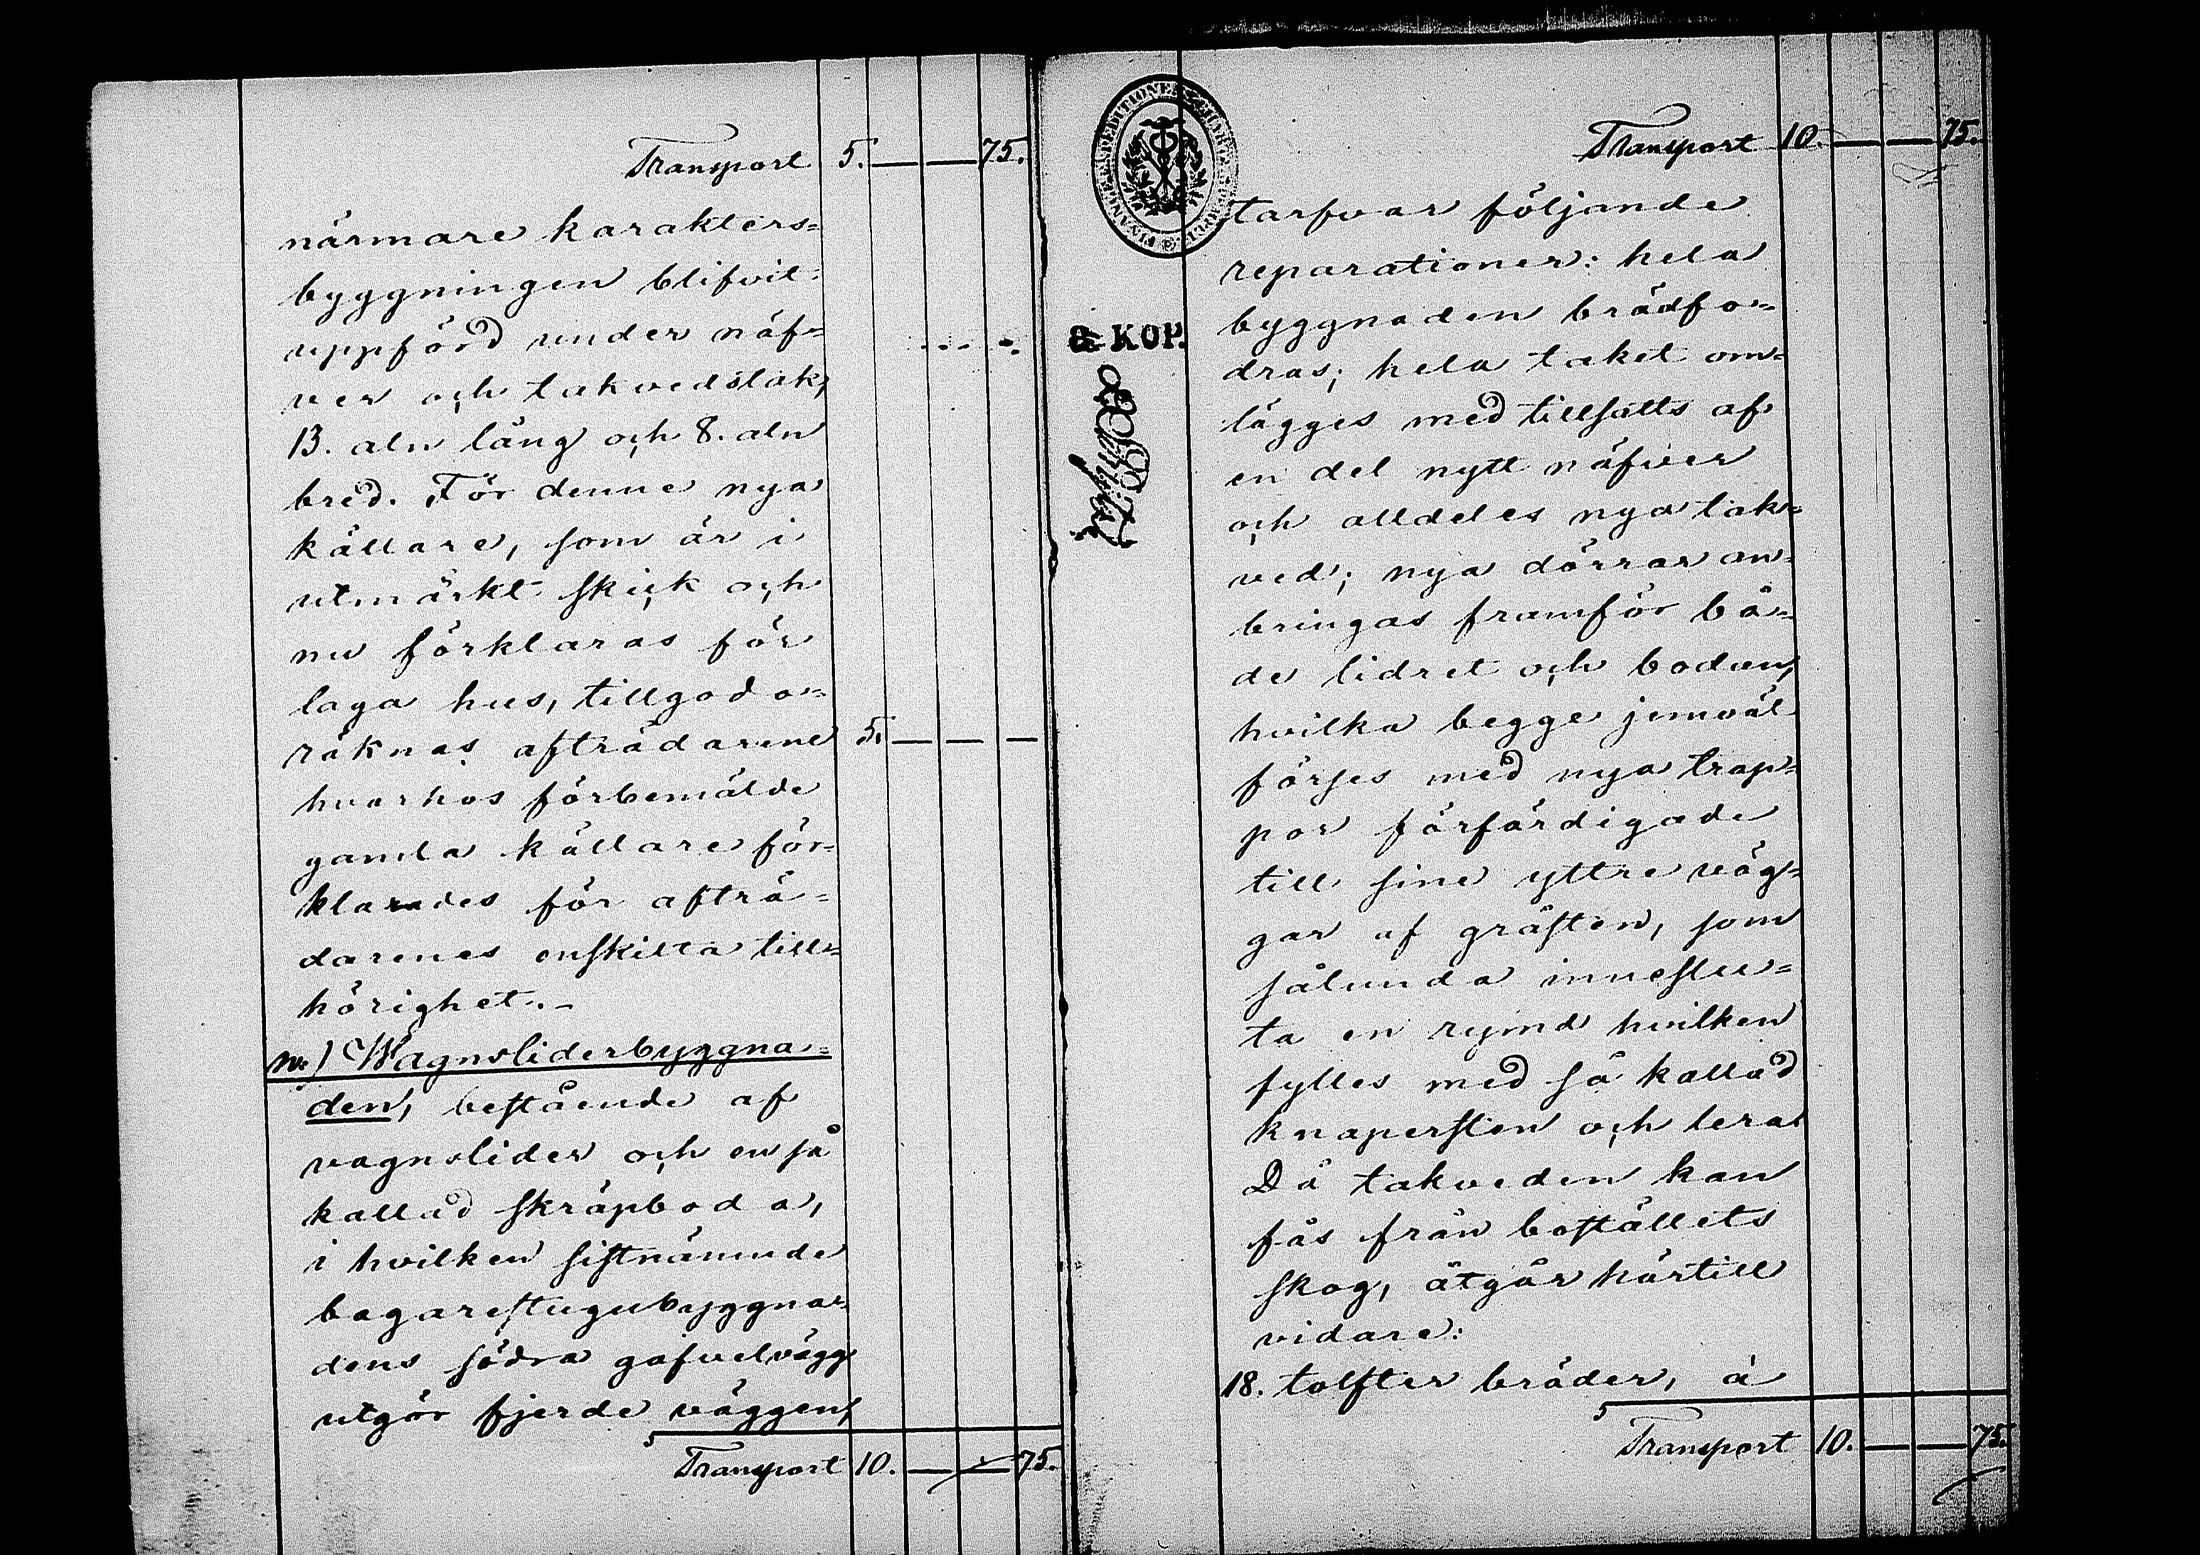 Transport 5. — — 75.
närmare karakters=
byggningen blifvit
uppförd under näf=
ver och takvedstak,
13. aln lång och 8. aln
bred. För denne nya
källare, som är i
utmärkt skick och
nu förklaras för
laga hus, tillgodo=
räknas afträdarene 5. — — —
hvarhos förbemälde
gamla källare för=
klarades för afträ=
darenes enskilta till=
hörighet. —
m.) Wagnsliderbyggna=
den, bestående af
vagnslider och en så
kallad skräpboda,
i hvilken sistnämnde
bagarestugubyggna=
dens södra gafvelvägg
utgör fjerde väggen,
Transport 10. — — 75.
Transport 10. — — 75.
tarfvar följande
reparationer: hela
byggnaden brädfo=
dras; hela taket om=
lägges med tillsatts af
en del nytt näfver
och alldeles nya tak=
ved; nya dörrar an=
bringas framför bå=
de lidret och bodan,
hvilka begge jemväl
förses med nya trap=
por förfärdigade
till sine yttre väg=
gar af gråsten, som
sålunda inneslu=
ta en rymd hvilken
fylles med så kallad
knapersten och lera.
Då takveden kan
fås från boställets
skog, åtgår härtill
vidare:
18. tolfter bräder, à
Transport 10. — — 75.
KOP.